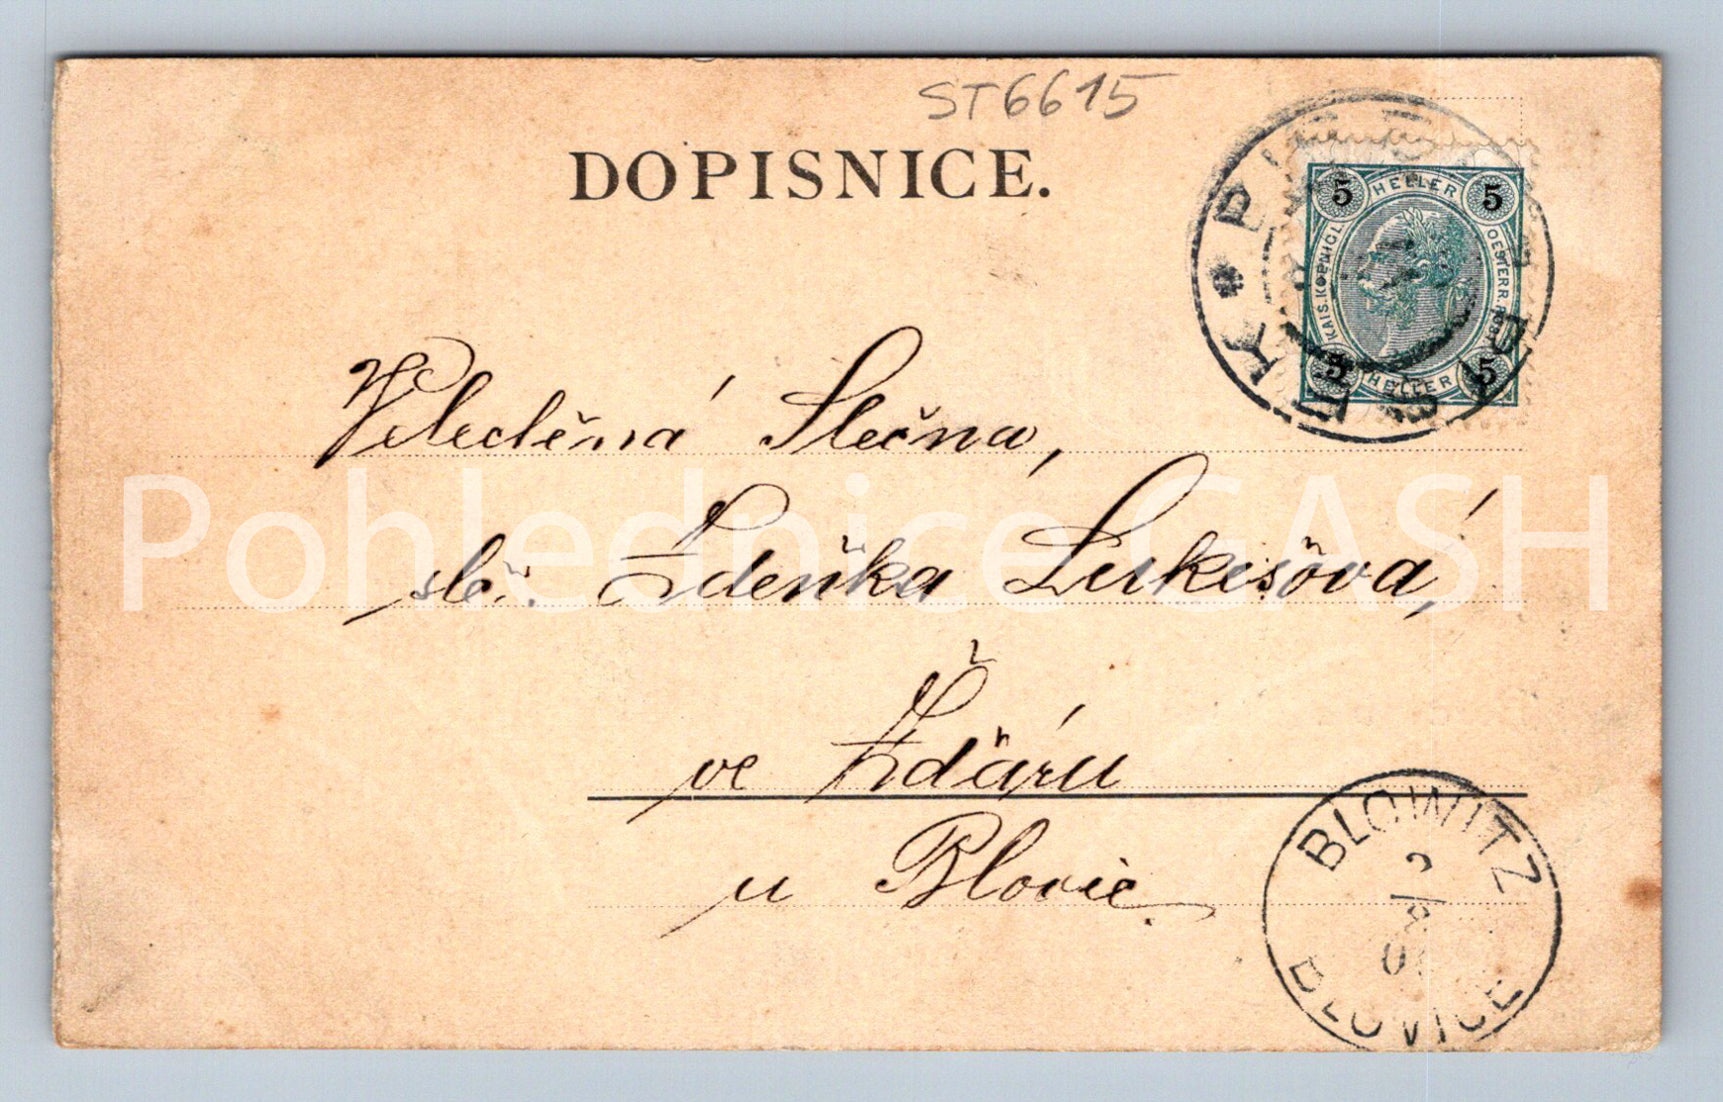 ST6615
DOPISNICE.
5 HELLER 5
KAIS. KOENIGL. OESTERR. POST
5 HELLER 5
Velectěná Slečna,
slč. Zdeňka Lukešova,
ve Ždáru
u Blovic.
BLOWITZ
BLOVICE
Pohlednice GASH